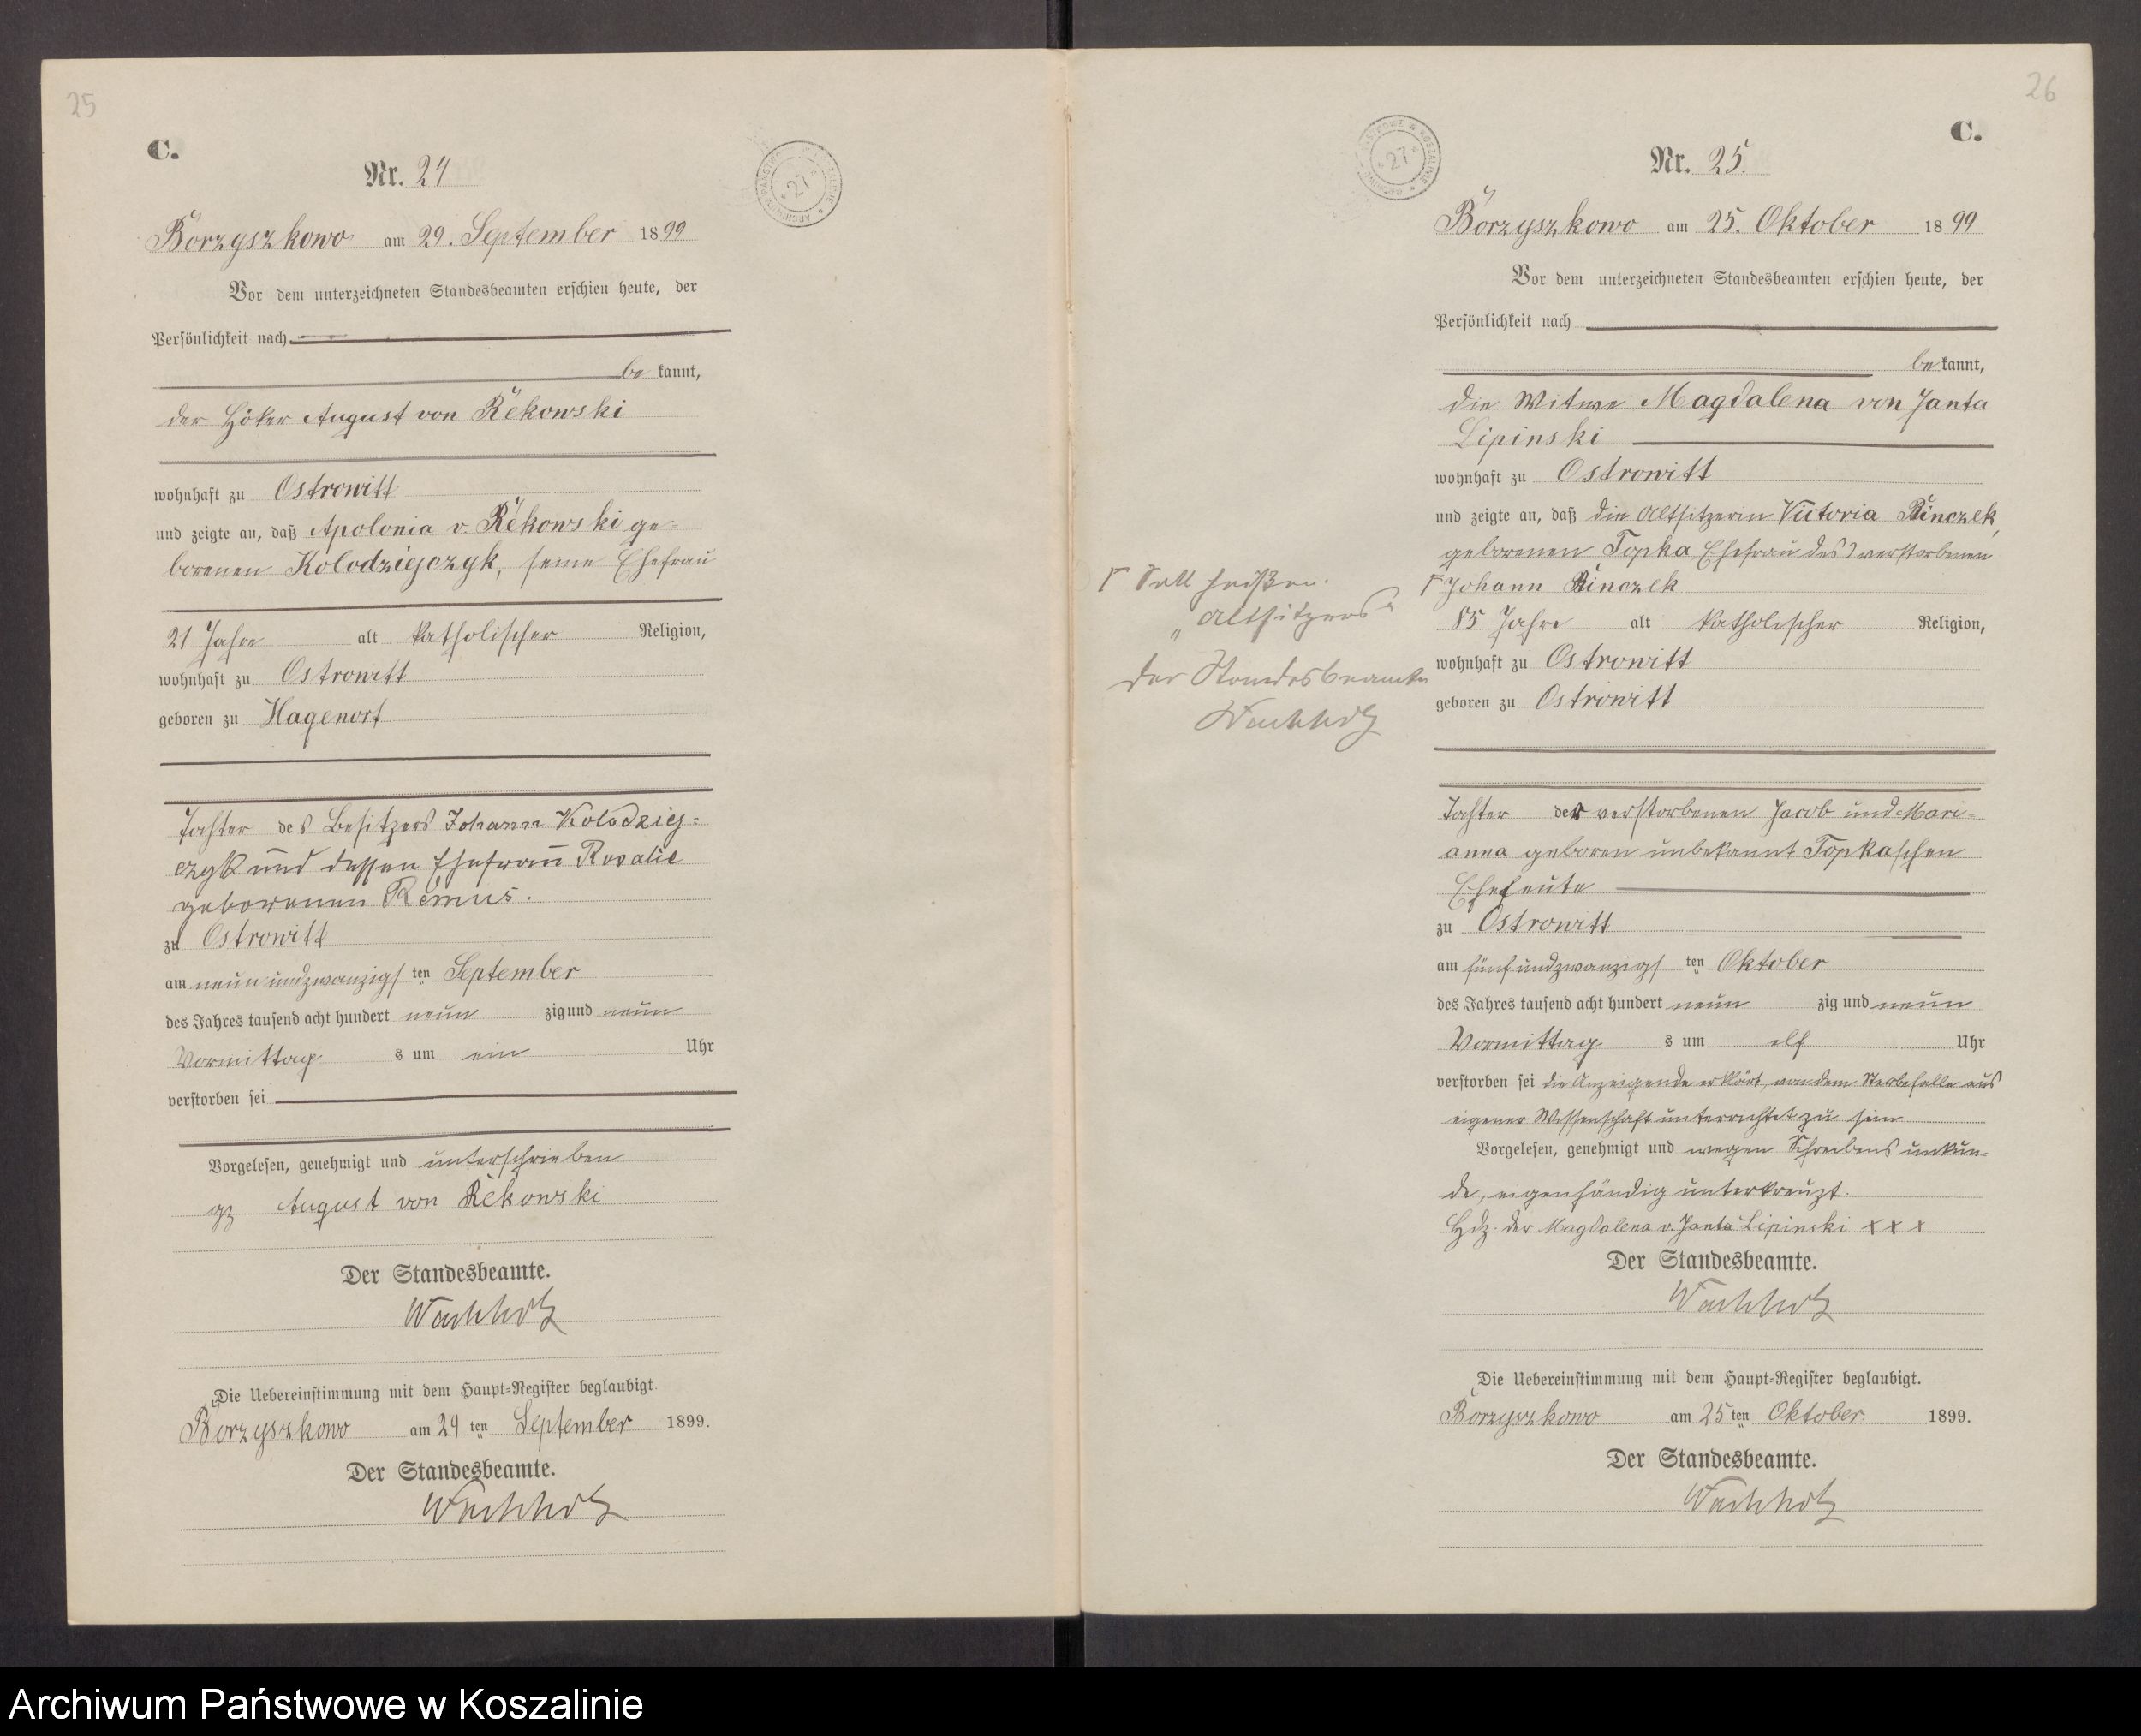 25
C.
Nr. 24
Borzyszkowo am 29. September 1899
Vor dem unterzeichneten Standesbeamten erschien heute, der
Persönlichkeit nach
be kannt,
der Höker August von Rekowski
wohnhaft zu Ostrowitt
und zeigte an, daß Apolonia v. Rekowski ge-
borenen Kolodziejczyk, seine Ehefrau
21 Jahre alt katholischer Religion,
wohnhaft zu Ostrowitt
geboren zu Hagenort
Tochter des Besitzers Johann Kolodziej=
czyk und dessen Ehefrau Rosalie
geborenen Remus.
zu Ostrowitt
am neunundzwanzigs ten September
des Jahres tausend acht hundert neun zig und neun
Vormittag s um ein Uhr
verstorben sei
Vorgelesen, genehmigt und unterschrieben
gz August von Rekowski
Der Standesbeamte.
Wachholz
Die Uebereinstimmung mit dem Haupt=Register beglaubigt.
Borzyszkowo am 29 ten September 1899.
Der Standesbeamte.
Wachholz
27
26
C.
27
Nr. 25.
Borzyszkowo am 25. Oktober 1899
Vor dem unterzeichneten Standesbeamten erschien heute, der
Persönlichkeit nach
be kannt,
die Witwe Magdalena von Janta
Lipinski
wohnhaft zu Ostrowitt
und zeigte an, daß die Altsitzerin Victoria Rinczek,
geborenen Topka Ehefrau des verstorbenen
Γ Johann Rinczek
85 Jahre alt katholischer Religion,
wohnhaft zu Ostrowitt
geboren zu Ostrowitt
Γ Soll heißen.
„Altsitzers“
Der Standesbeamte
Wachholz
Tochter der verstorbenen Jacob und Mari-
anna geboren unbekannt Topkaschen
Eheleute
zu Ostrowitt
am fünfundzwanzigs ten Oktober
des Jahres tausend acht hundert neun zig und neun
Vormittag s um elf Uhr
verstorben sei die Anzeigende erklärt, von dem Sterbefalle aus
eigener Wissenschaft unterrichtet zu sein
Vorgelesen, genehmigt und wegen Schreibens unkun-
de, eigenhändig unterkreuzt.
Hdz. der Magdalena v. Janta Lipinski x x x
Der Standesbeamte.
Wachholz
Die Uebereinstimmung mit dem Haupt=Register beglaubigt.
Borzyszkowo am 25 ten Oktober 1899.
Der Standesbeamte.
Wachholz
Archiwum Państwowe w Koszalinie